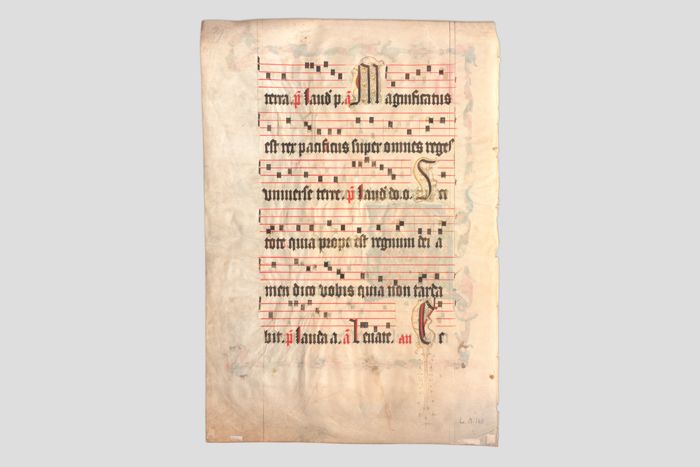 terra. p̄ laud p. a Magnificatus
est rex pacificus super omnes reges
vniuerse terre. p̄ laud do. o. Sci
tote quia prope est regnum dei a
men dico vobis quia non tarda
bit. p̄ lauda a. a Leuate. an E c